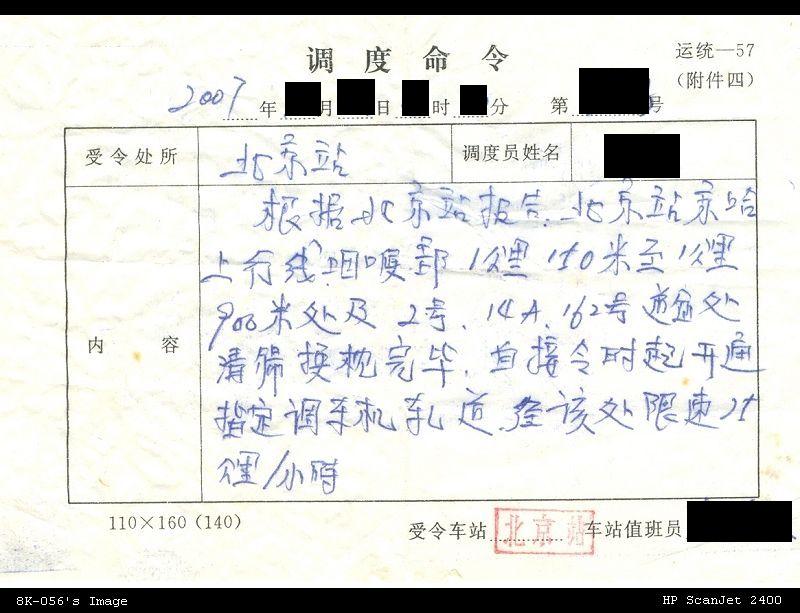 调度命令
运统—57
(附件四)
2007年 月 日 时 分 第 号
受令处所 北京站 调度员姓名
内容
根据北京站报告,北京站京哈
上行线咽喉部1公里150米至1公里
900米处及2号、14A、162号道岔处
清筛换枕完毕,自接令时起开通
指定调车机轧道,经该处限速25
公里/小时
110×160(140)
受令车站 北京站 车站值班员
8K-056's Image
HP ScanJet 2400